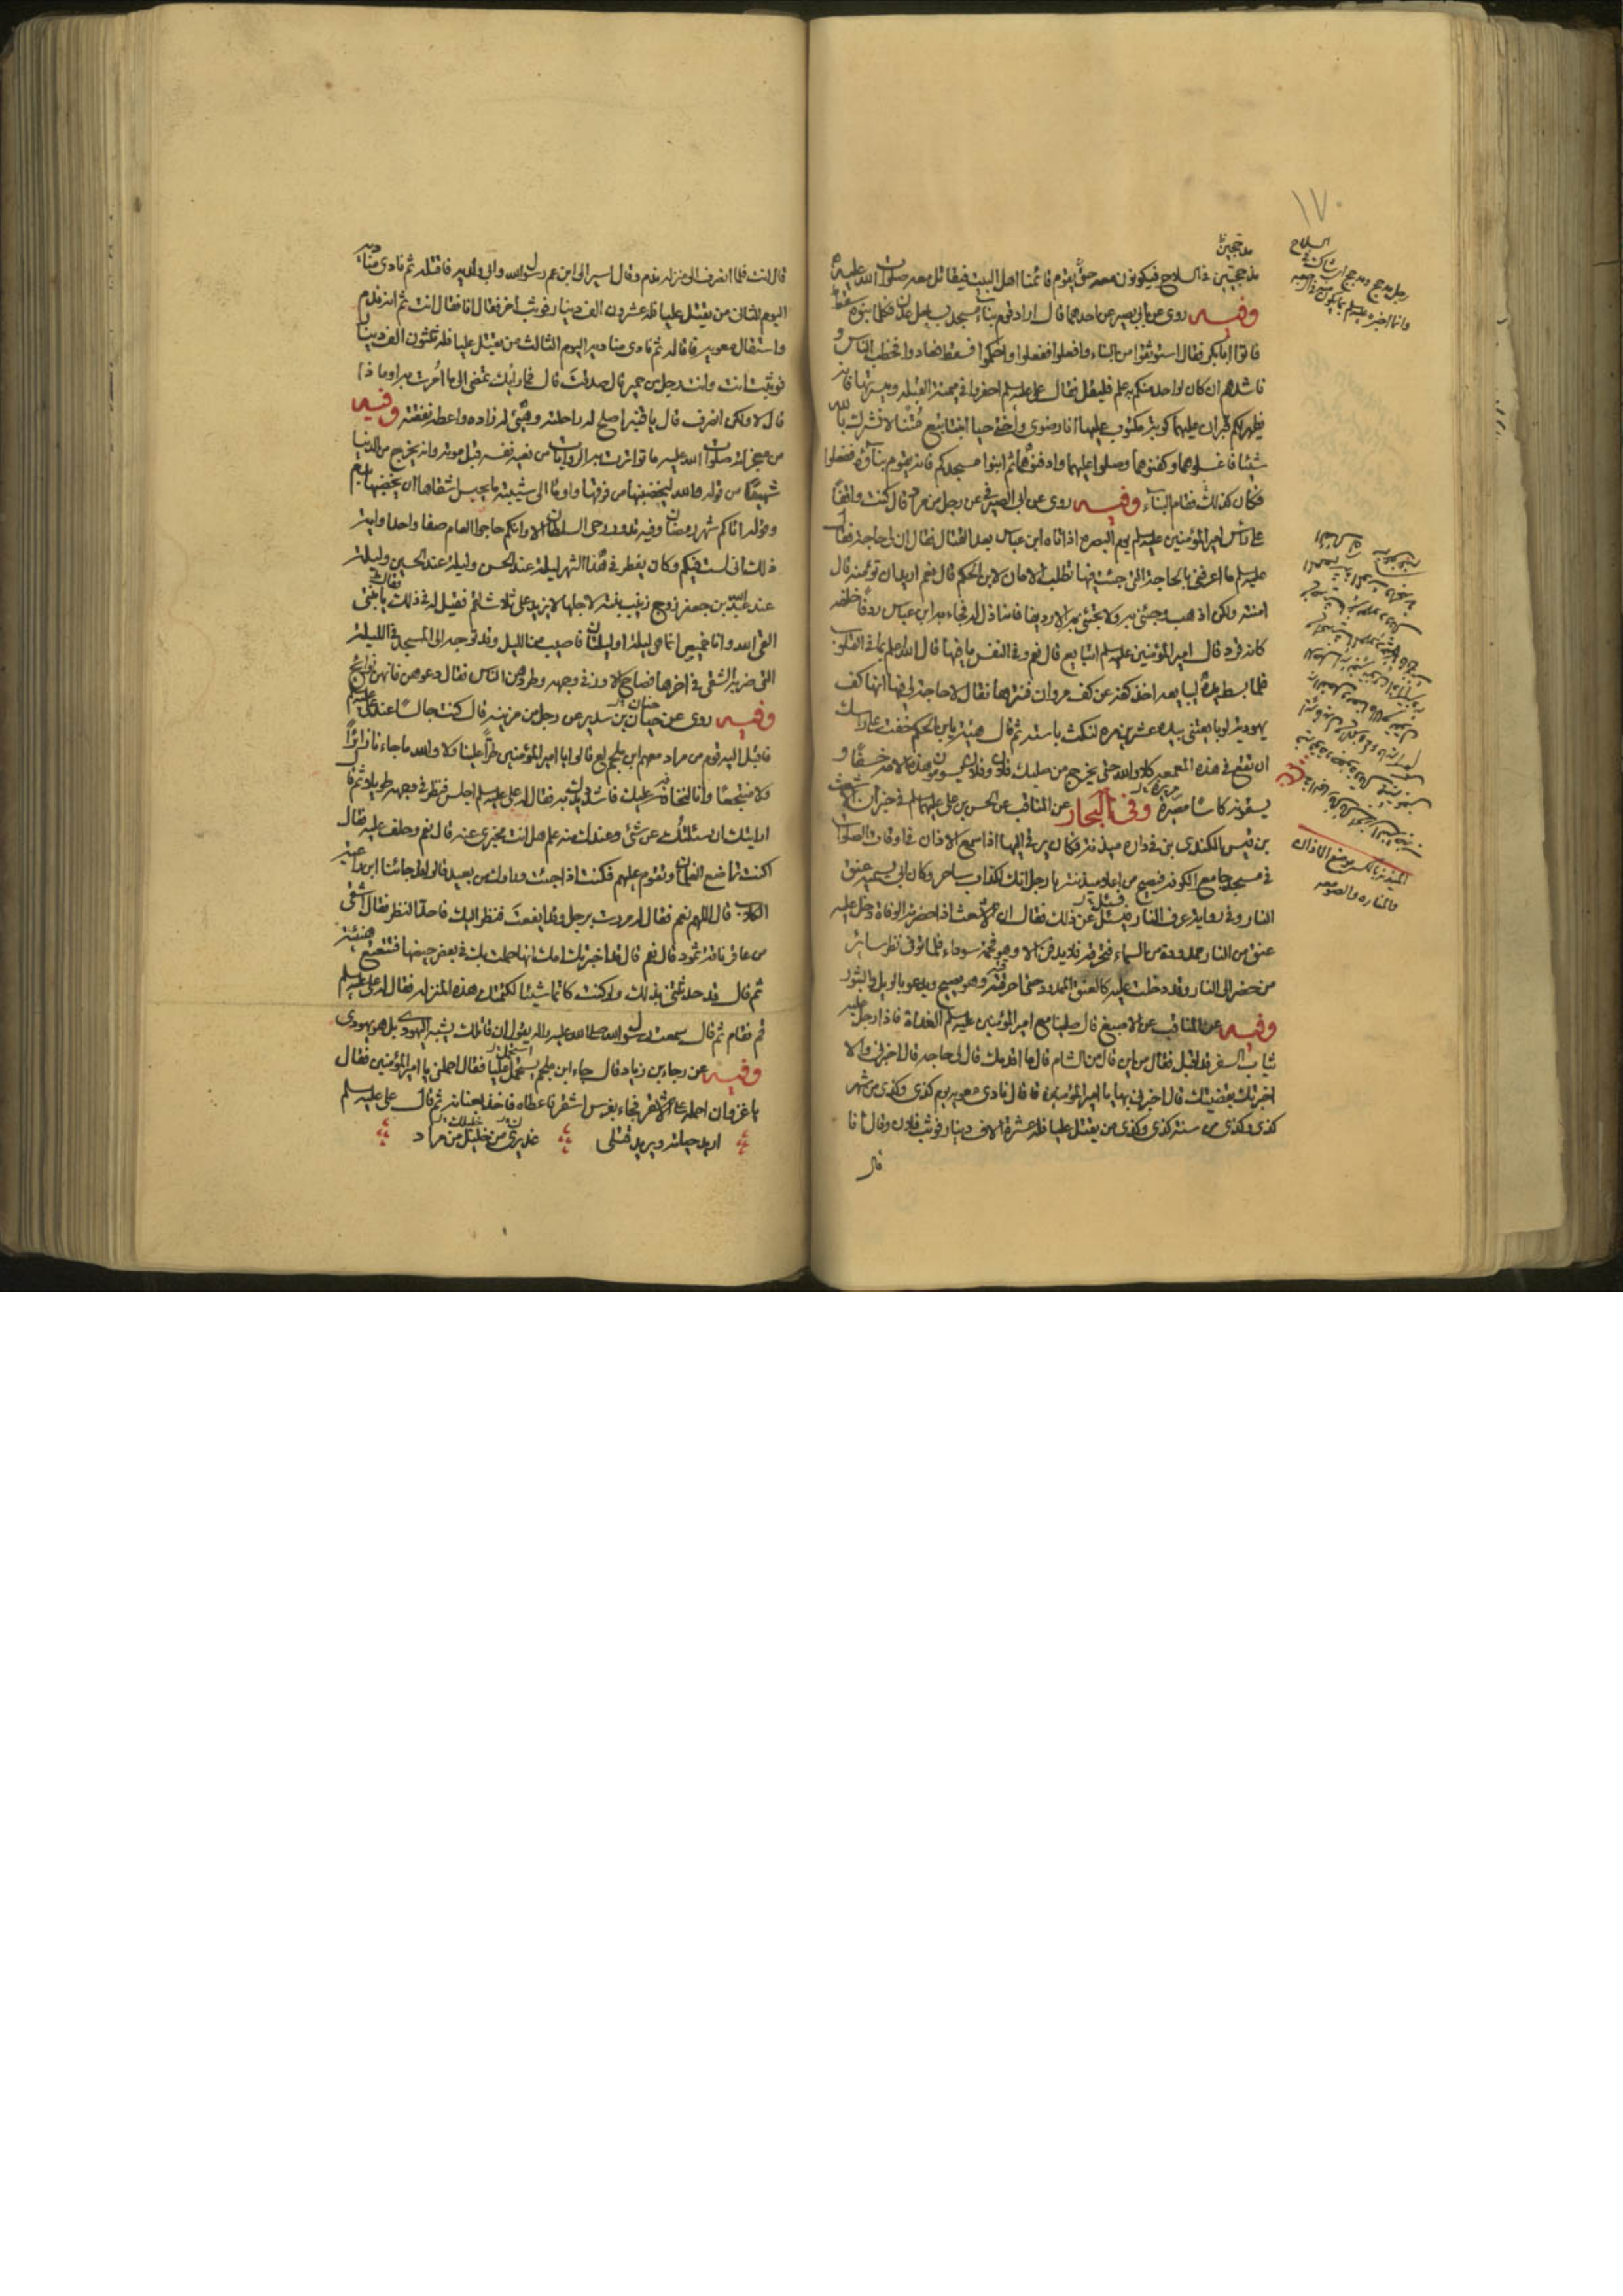 ١٧٠
مدججين
مدججين في السلاح فيكونون معه حتى يقوم قائمنا اهل البيت فيقاتل معه صلوات الله عليه
وفيه روى عن ابي بصير عن احدهما قال اراد قوم بناء مسجد بساحل عدن فكلما بنوه سقط
فاتوا ابا بكر فقال استوثقوا من البناء وافعلوا ففعلوا واحكموا فسقط فعادوا فخطب الناس و
ناشدهم ان كان لواحد منكم به علم فليقل فقال علي عليه السلم احفروا في ميمنة القبلة وميسرتها فانه
يظهر لكم قبران عليهما كوبة مكتوب عليها انا رضوى واختي حيا ابنتا تبع متنا لا نشرك بالله
شيئا فاغسلوهما وكفنوهما وصلوا عليهما وادفنوهما ثم ابنوا مسجدكم فانه يقوم بناؤه ففعلوا
فكان كذلك فقام البناء وفيه روى عن ابي الصيرفي عن رجل من مراد قال كنت واقفا
على رأس امير المؤمنين عليه السلم يوم البصرة اذ اتاه ابن عباس بعد القتال فقال ان لي حاجة فقال
عليه السلم ما اعرفني بالحاجة التي جئت فيها تطلب الامان لابن الحكم قال نعم اريد ان تؤمنه قال
امنته ولكن اذهب وجئني به ولا تجئني به الا رديفا فانه اذل له فجاء به ابن عباس ردفا خلفه
كانه قرد قال امير المؤمنين عليه السلم اتبايع قال نعم وفي النفس ما فيها قال الله اعلم بما في القلوب
فلما بسط يده ليبايعه اخذ كفه عن كف مروان فنترها فقال لا حاجة لي فيها انها كف
يهودية لو بايعني بيده عشرين مرة لنكث باسته ثم قال هيه يابن الحكم خفت على راسك
ان تقع في هذه المعمعة كلا والله حتى يخرج من صلبك فلان وفلان يسومون هذه الامة خسفا و
يسقونه كاسا مصبرة وفي البحار عن المناقب عن الحسن بن علي عليهما السلم في خبر ان الاشعث
بن قيس الكندي بنى في داره ميذنة فكان يرقى اليها اذا سمع الاذان في اوقات الصلوات
في مسجد جامع الكوفة فيصيح من اعلا ميذنته يا رجل انك لكذاب ساحر وكان ابي يسميه عنق
النار وفي رواية عرف النار فيسئل عن ذلك فقال ان الاشعث اذا حضرته الوفاة دخل عليه
عنق من النار ممدودة من السماء فتحرقه فلا يدفن الا وهو فحمة سوداء فلما توفي نظر سائر
من حضر الى النار وقد دخلت عليه كالعنق الممدود حتى احرقته وهو يصيح ويدعو بالويل والثبور
وفيه عن المناقب عن الاصبغ قال صلينا مع امير المؤمنين عليه السلم الغداة فاذا رجل عليه
ثياب السفر قد اقبل فقال من اين قال من الشام قال ما اقدمك قال لي حاجة قال اخبرني والا
اخبرتك بقضيتك قال اخبرني بها يا امير المؤمنين قال نادى معوية يوم كذى وكذى من شهر
كذى وكذى من سنة كذى وكذى من يقتل عليا فله عشرة الاف دينار فوثب فلان وقال انا
قال
الميذنة بالكسر موضع الاذان
والمناره والصومعه
قال انت فلما انصرف الى منزله ندم وقال اسير الى ابن عم رسول الله وابي ولديه فاقتله ثم نادى مناديه
اليوم الثاني من يقتل عليا فله عشرون الف دينار فوثب اخر فقال انا فقال انت ثم انه ندم
واستقال معوية فاقاله ثم نادى مناديه اليوم الثالث من يقتل عليا فله ثلثون الف دينار
فوثبت انت وانت رجل من حمير قال صدقت قال فما رايك تمضي الى ما امرت به او ما ذا
قال لا ولكن انصرف قال يا قنبر اصلح له راحلته وهيئ له زاده واعطه نفقته وفيه
من معجزاته صلوات الله عليه ما تواترت به الروايات من نعيه نفسه قبل موته وانه يخرج من الدنيا
شهيدا من قوله والله ليخضبنها من فوقها واومأ الى شيبته ما يحبس اشقاها ان يخضبها بدم
وقوله اتاكم شهر رمضان وفيه تدور رحى السلطان الا وانكم حاجوا العام صفا واحدا واية
ذلك اني لست فيكم وكان يفطر في هذا الشهر ليلة عند الحسن وليلة عند الحسين وليلة
عند عبد الله بن جعفر زوج زينب بنته لاجلها لا يزيد على ثلاث لقم فقيل له في ذلك فقال يأتيني
امر الله وانا خميص انما هي ليلة او ليلتان فاصيب من الليل وقد توجه الى المسجد في الليلة
التي ضربه الشقي في اخرها فصاح الاوز في وجهه وطردهن الناس فقال دعوهن فانهن نوايح
وفيه روى عن حنان بن سدير عن رجل من مزينة قال كنت جالسا عند علي عليه السلم
فاقبل اليه قوم من مراد معهم ابن ملجم لع قالوا يا امير المؤمنين طرأ علينا ولا والله ما جاءنا زائرا
ولا منتجعا وانا لنخافه عليك فاشدد يدك به فقال له علي عليه السلم اجلس فنظر في وجهه طويلا ثم قال
ارايتك ان سئلتك عن شئ وعندك منه علم هل انت مخبري عنه قال نعم وحلف عليه فقال
اكنت تراضع الغلمان وتقوم عليهم فكنت اذا جئت وراوك من بعيد قالوا قد جائنا ابن راعية
الكلاب قال اللهم نعم فقال له مررت برجل وقد ايفعت فنظر اليك فاحد النظر فقال اشقى
من عاقر ناقة ثمود قال نعم قال قد اخبرتك امك انها حملت بك في بعض حيضها فتتعتع هنيئة
ثم قال قد حدثتني بذلك ولو كنت كاتما شيئا لكتمتك هذه المنزلة فقال له علي عليه السلم
قم فقام ثم قال سمعت رسول الله صلى الله عليه واله يقول ان قاتلك يشبه اليهودي بل هو يهودي
وفيه عن رجاء بن زياد قال جاء ابن ملجم يستحمل عليا فقال احملني يا امير المؤمنين فقال
يا غزوان احمله على الاشقر فجاء بفرس اشقر فاعطاه فاخذ عنانه ثم قال علي عليه السلم
اريد حياته ويريد قتلي عذيري من خليلي من مراد